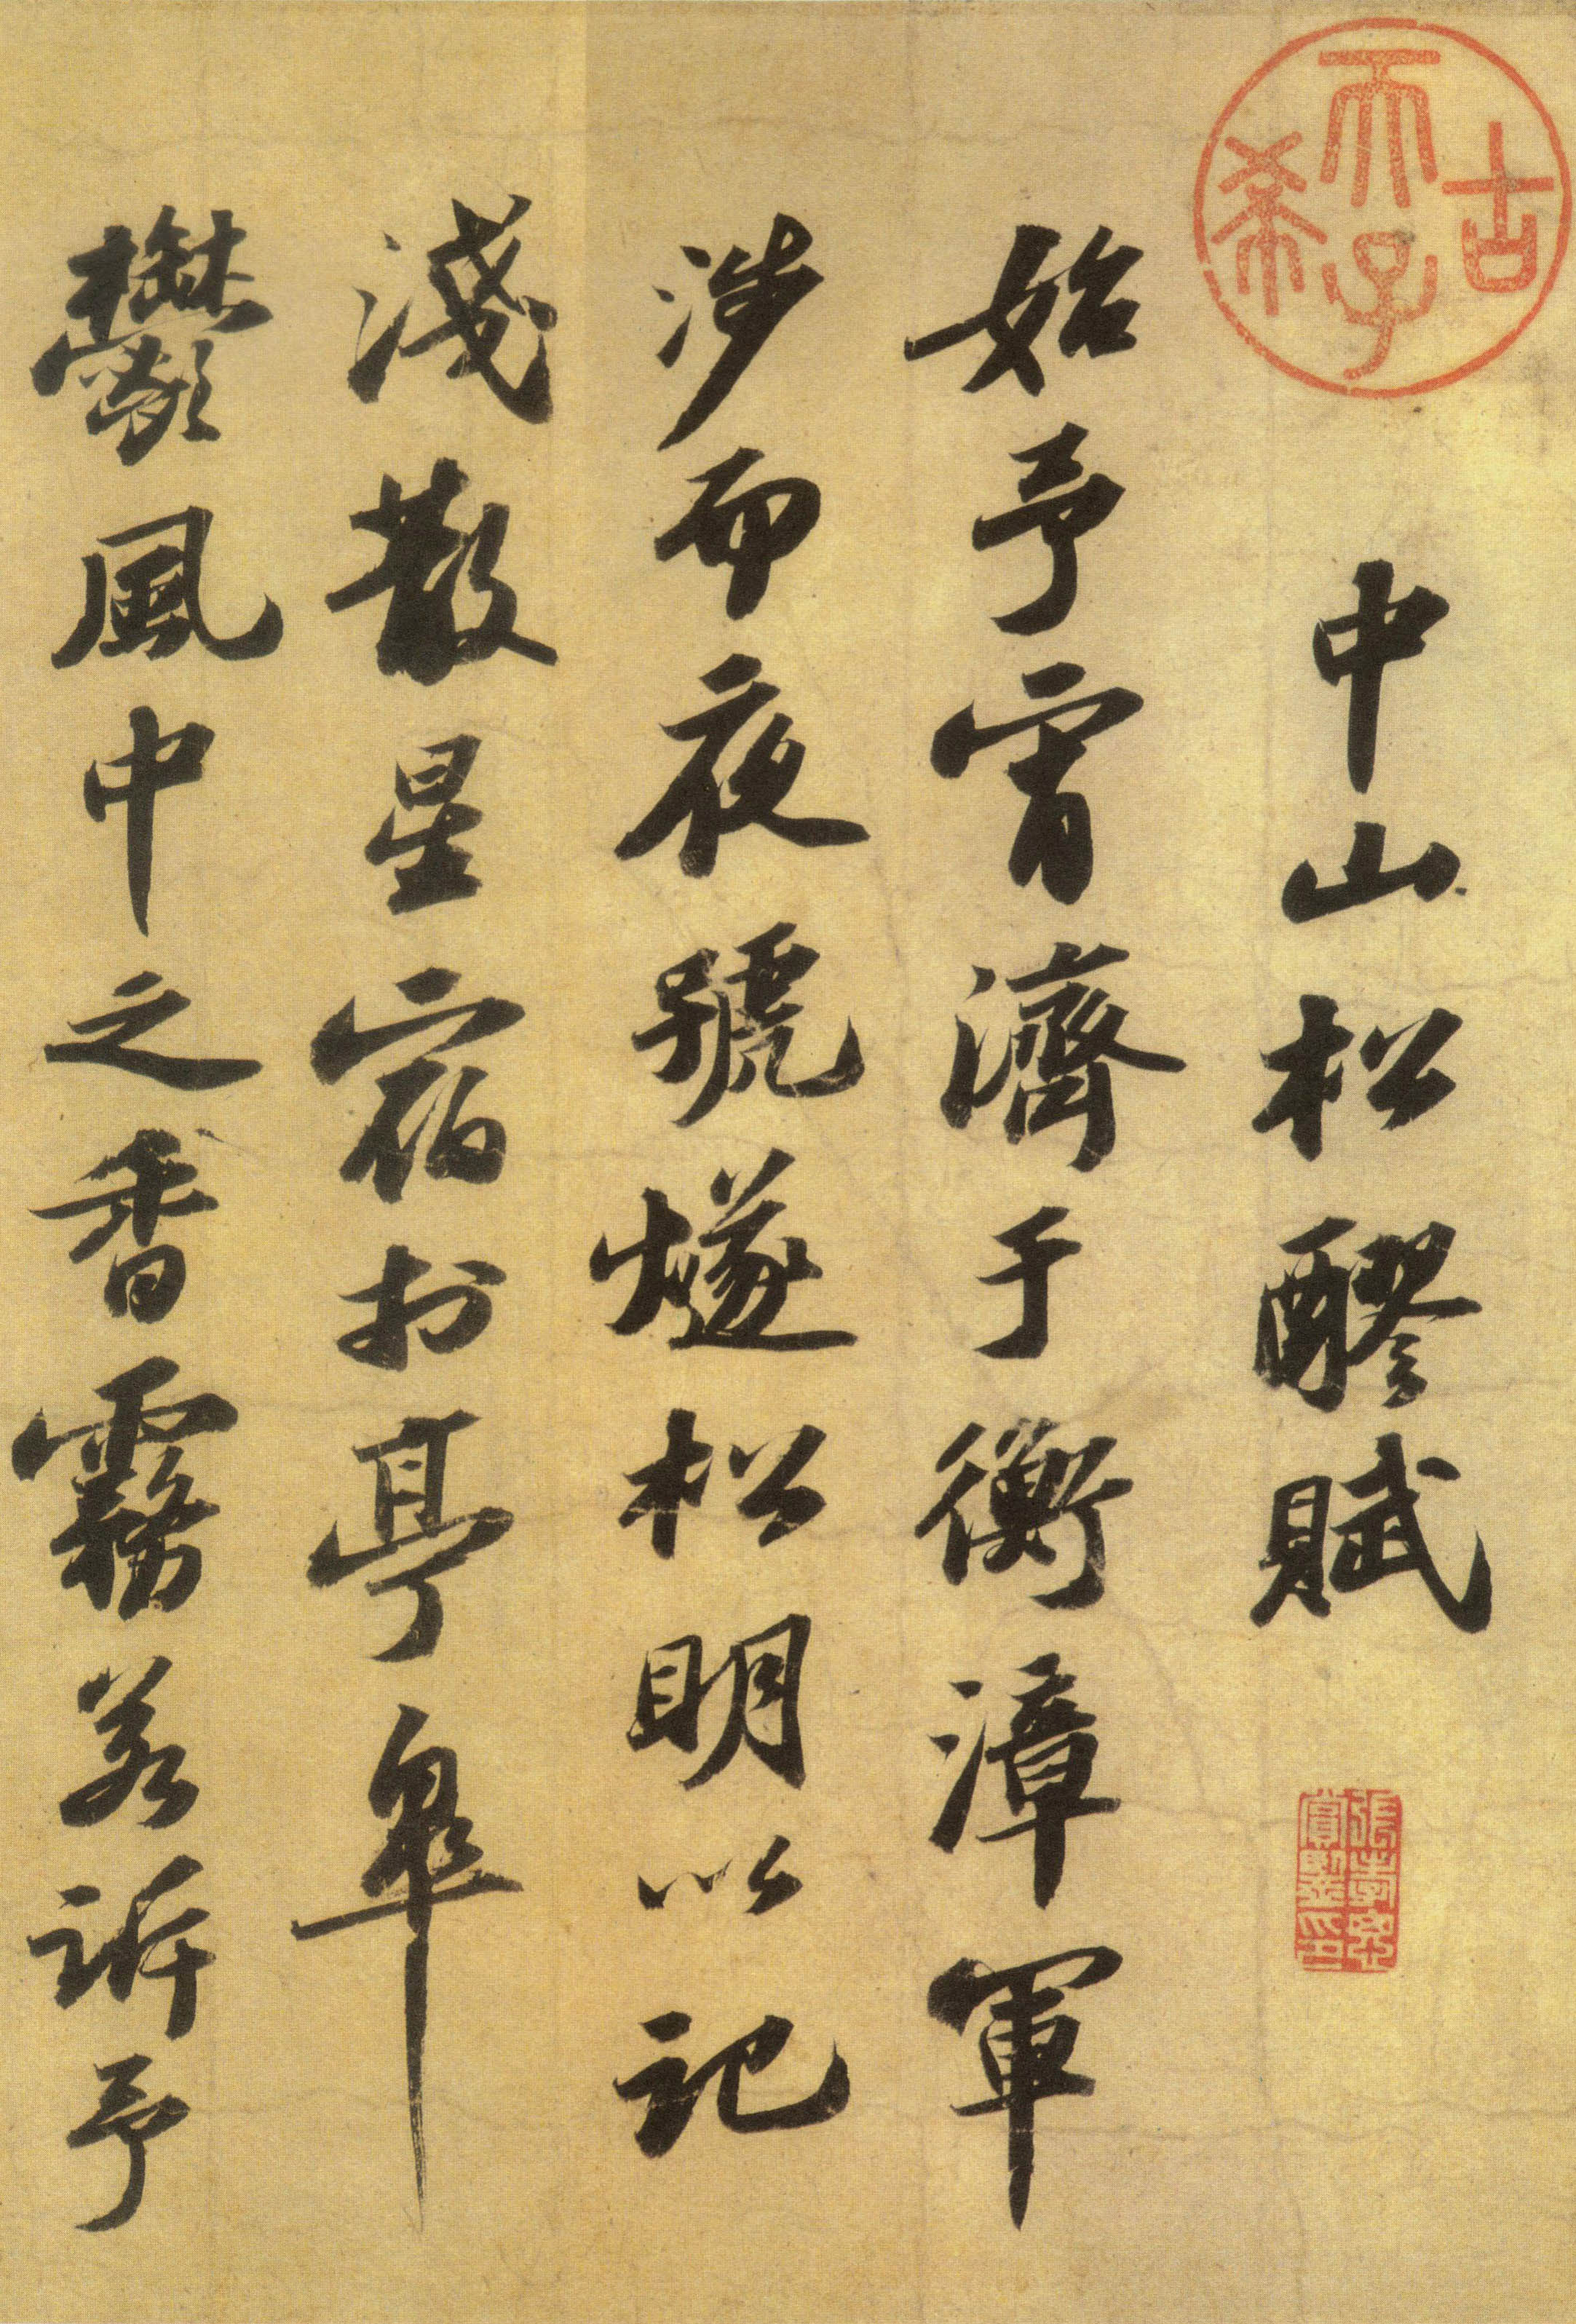 古希天子
中山松醪賦
張孝思
賞鑑印
始予宵濟于衡漳軍
涉而夜號燧松明以記
淺散星宿於亭皋
鬱風中之香霧若訴予